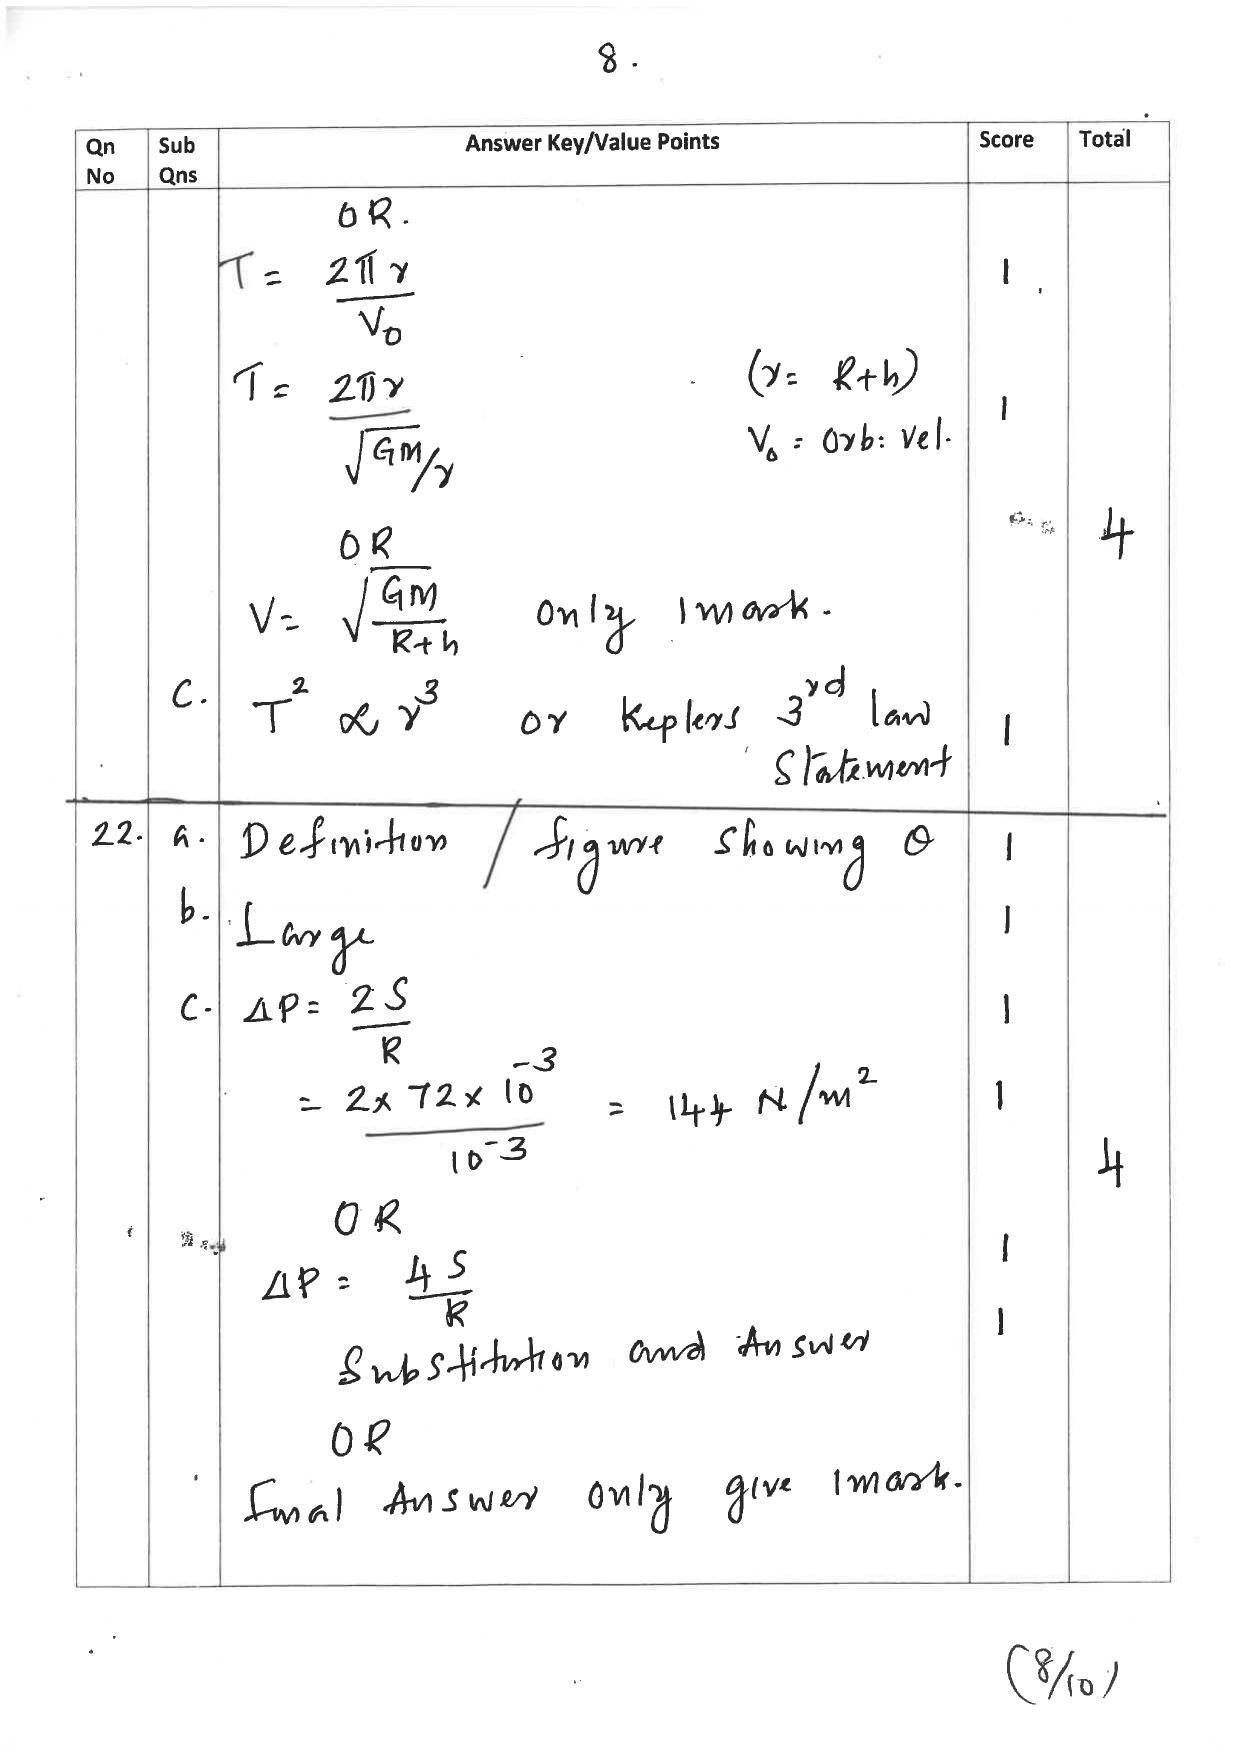 8.
Qn No Sub Qns Answer Key/Value Points Score Total
OR.
T = 2π r / V₀ 1
T = 2π r / √GM/r (r = R+h) 1
V₀ = Orb: vel.
4
OR
V = √GM / R+h only 1 mark.
c. T² ∝ r³ or Keplers 3rd law 1
Statement
22. a. Definition / figure showing θ 1
b. Large 1
c. ΔP = 2S / R 1
= 2 x 72 x 10⁻³ / 10⁻³ = 144 N/m² 1
4
OR
ΔP = 4S / R 1
1
Substitution and Answer
OR
Final Answer only give 1 mark.
(8/10)